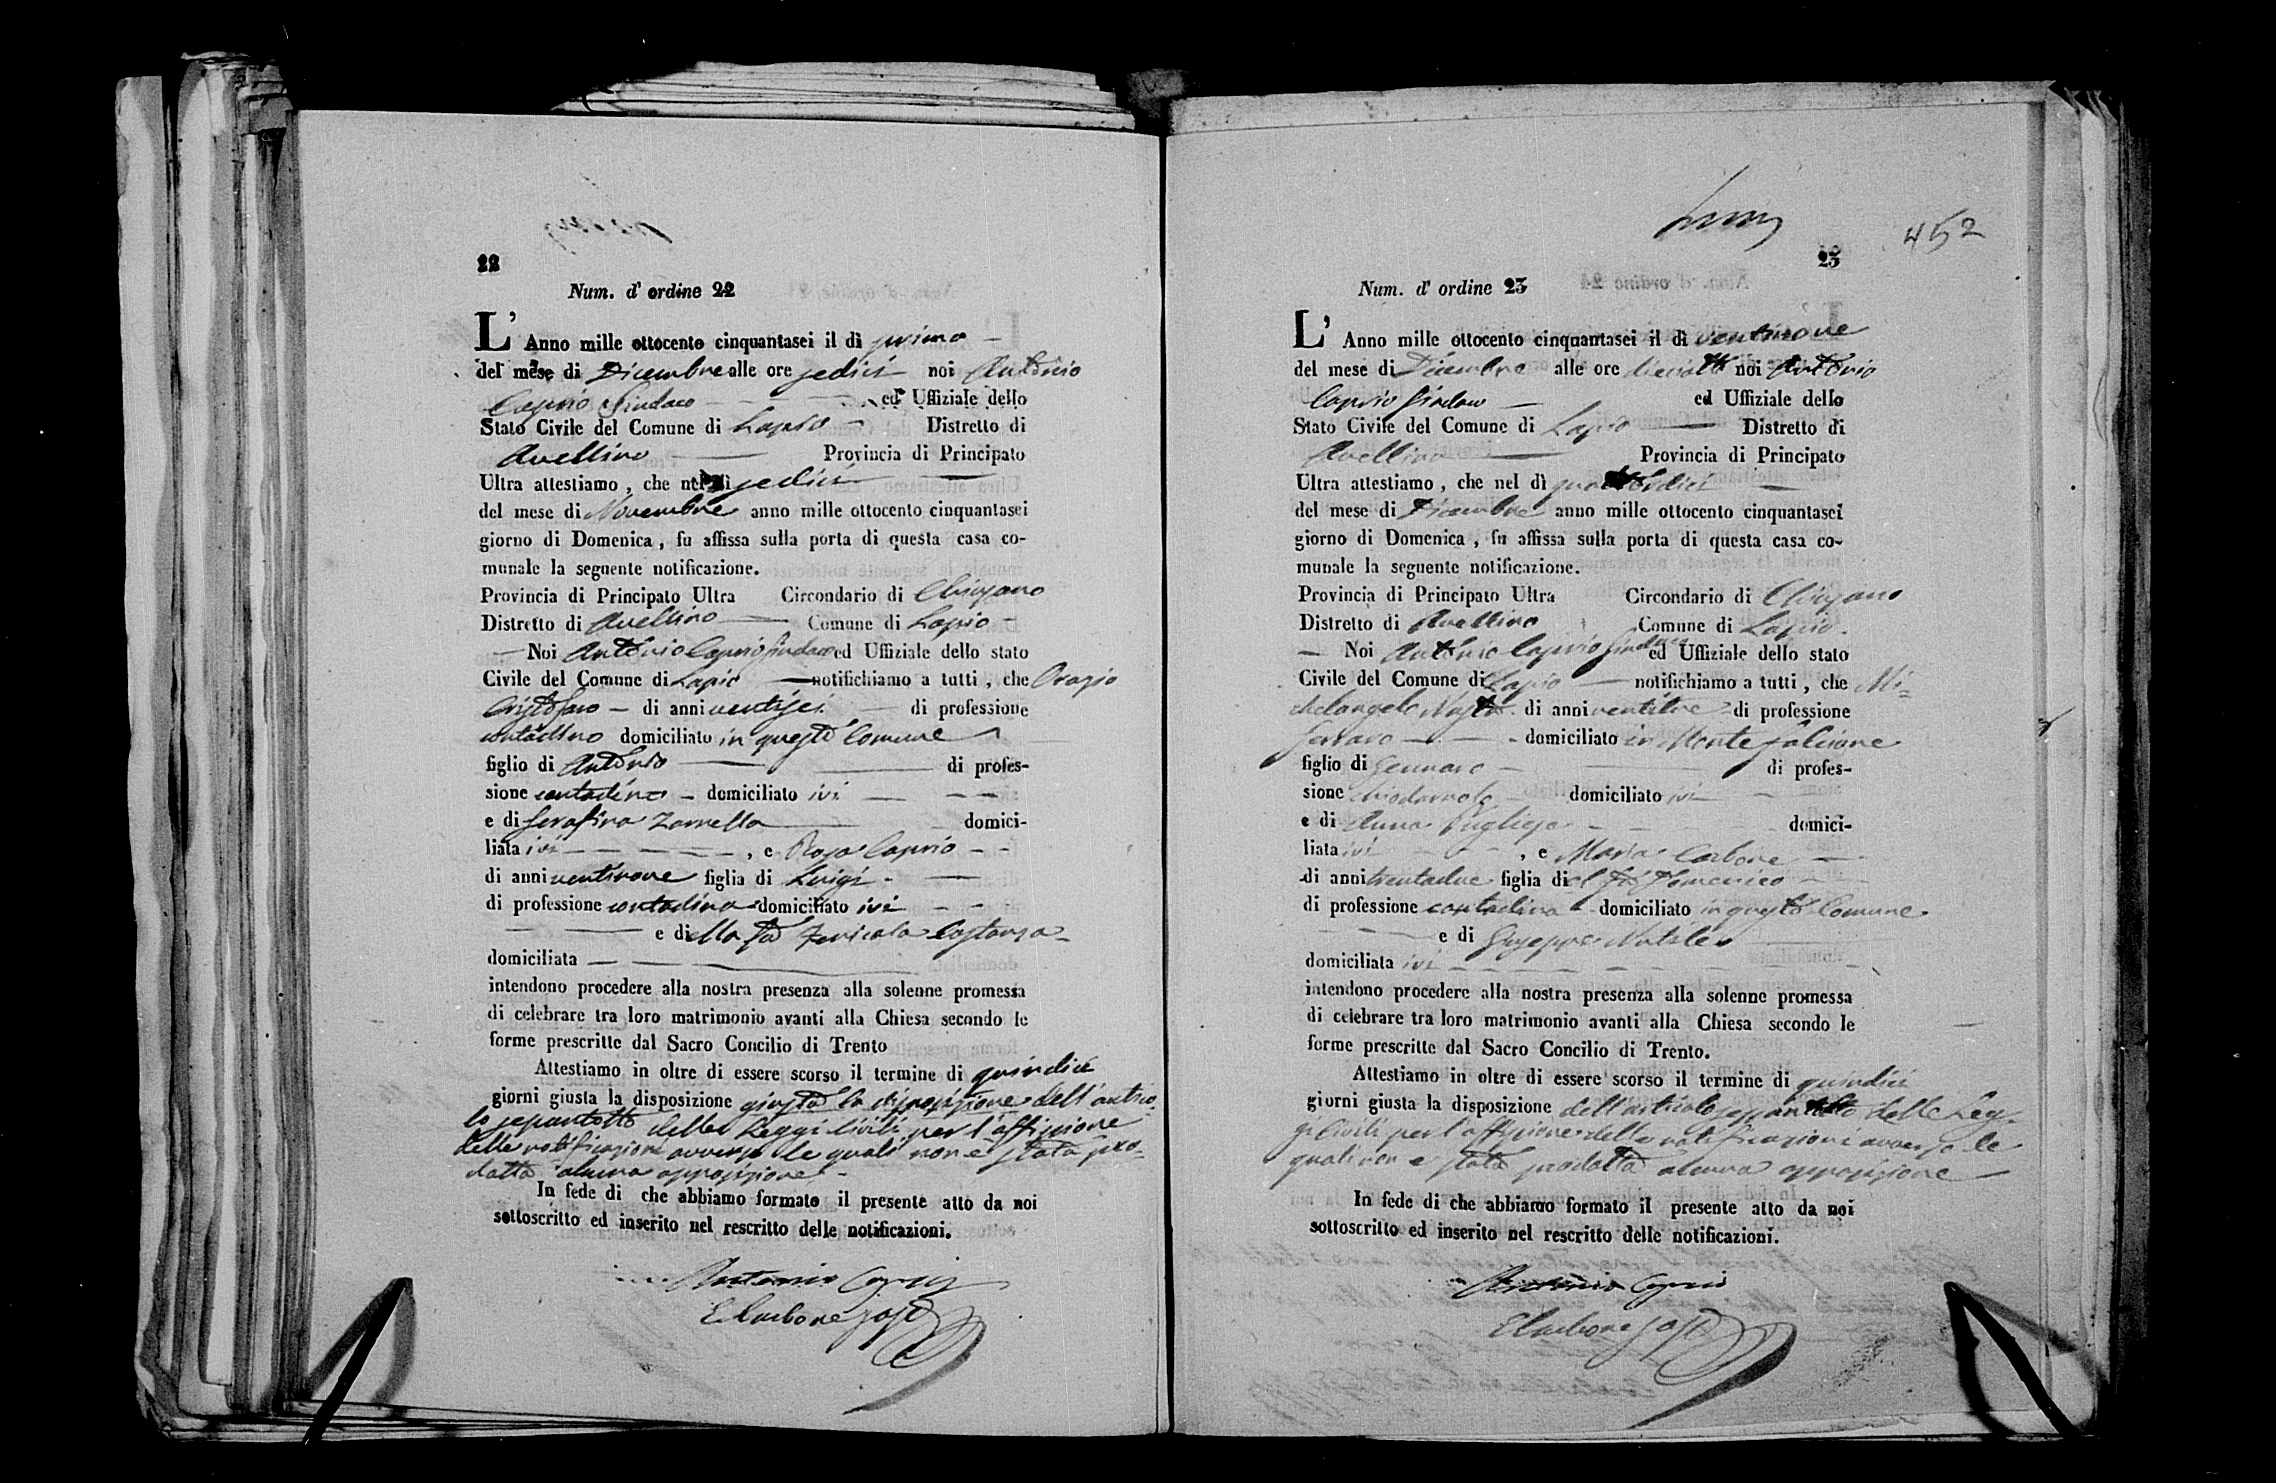 22
Num. d' ordine 22
L' Anno mille ottocento cinquantasei il dì primo
del mese di Dicembre alle ore sedici noi Antonio
Caprio Sindaco ed Uffiziale dello
Stato Civile del Comune di Lapio Distretto di
Avellino Provincia di Principato
Ultra attestiamo , che nel dì sedici
del mese di Novembre anno mille ottocento cinquantasei
giorno di Domenica , fu affissa sulla porta di questa casa co-
munale la seguente notificazione.
Provincia di Principato Ultra Circondario di Chiusano
Distretto di Avellino Comune di Lapio
Noi Antonio Caprio Sindaco ed Uffiziale dello stato
Civile del Comune di Lapio notifichiamo a tutti , che Orazio
Cristofaro di anni ventisei di professione
contadino domiciliato in questo Comune
figlio di Antonio di profes-
sione contadino domiciliato ivi
e di Serafina Zarrella domici-
liata ivi , e Rosa Caprio
di anni ventinove figlia di Luigi
di professione contadina domiciliato ivi
e della fu Costanza
domiciliata
intendono procedere alla nostra presenza alla solenne promessa
di celebrare tra loro matrimonio avanti alla Chiesa secondo le
forme prescritte dal Sacro Concilio di Trento
Attestiamo in oltre di essere scorso il termine di quindici
giorni giusta la disposizione giusta la disposizione dell'artico-
lo sessantotto delle Leggi Civili per l'affissione
delle notificazioni avverso le quali non è stata pro-
dotta alcuna opposizione
In fede di che abbiamo formato il presente atto da noi
sottoscritto ed inserito nel rescritto delle notificazioni.
Antonio Caprio
E Carbone
452
23
Num. d' ordine 23
L' Anno mille ottocento cinquantasei il dì ventinove
del mese di Dicembre alle ore noi Antonio
Caprio Sindaco ed Uffiziale dello
Stato Civile del Comune di Lapio Distretto di
Avellino Provincia di Principato
Ultra attestiamo , che nel dì quattordici
del mese di Dicembre anno mille ottocento cinquantasei
giorno di Domenica , fu affissa sulla porta di questa casa co-
munale la seguente notificazione.
Provincia di Principato Ultra Circondario di Chiusano
Distretto di Avellino Comune di Lapio
Noi Antonio Caprio Sindaco ed Uffiziale dello stato
Civile del Comune di Lapio notifichiamo a tutti , che Mi=
chelangelo di anni ventitre di professione
ferraro domiciliato in Monte falcione
figlio di Gennaro di profes-
sione chiodarolo domiciliato ivi
e di Anna Pugliese domici-
liata ivi , e Maria Carbone
di anni trentadue figlia del fu Domenico
di professione contadina domiciliato in questo Comune
e di Giuseppa Natale
domiciliata ivi
intendono procedere alla nostra presenza alla solenne promessa
di celebrare tra loro matrimonio avanti alla Chiesa secondo le
forme prescritte dal Sacro Concilio di Trento.
Attestiamo in oltre di essere scorso il termine di quindici
giorni giusta la disposizione dell'articolo sessantotto delle Leg-
gi Civili per l'affissione delle notificazioni avverso le
quali non è stata prodotta alcuna opposizione
In fede di che abbiamo formato il presente atto da noi
sottoscritto ed inserito nel rescritto delle notificazioni.
Antonio Caprio
E Carbone